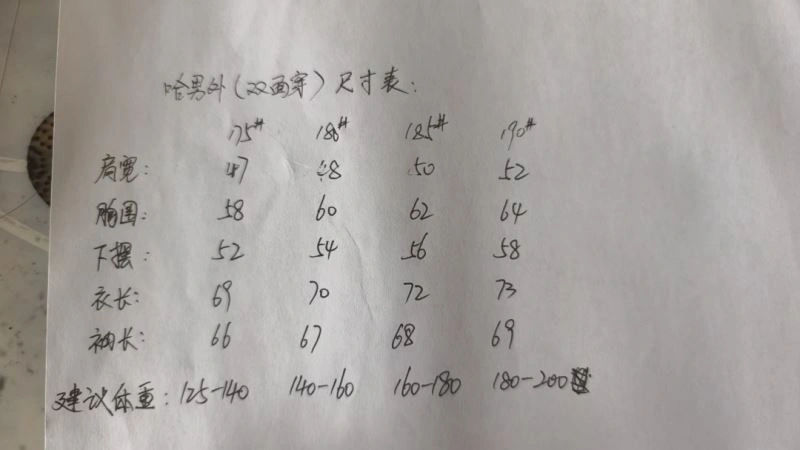 哈男外(双面穿)尺寸表:
175# 180# 185# 190#
肩宽: 47 48 50 52
胸围: 58 60 62 64
下摆: 52 54 56 58
衣长: 69 70 72 73
袖长: 66 67 68 69
建议体重: 125-140 140-160 160-180 180-200